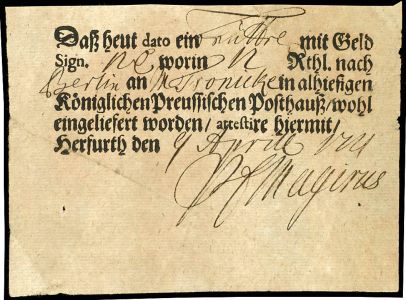 Daß heut dato ein mit Geld
Sign. worin Rthl. nach
Berlin an in alhiesigen
Königlichen Preussischen Posthauß/ wohl
eingeliefert worden/ attestire hiermit/
Herfurth den 9 Aprill
Magirus